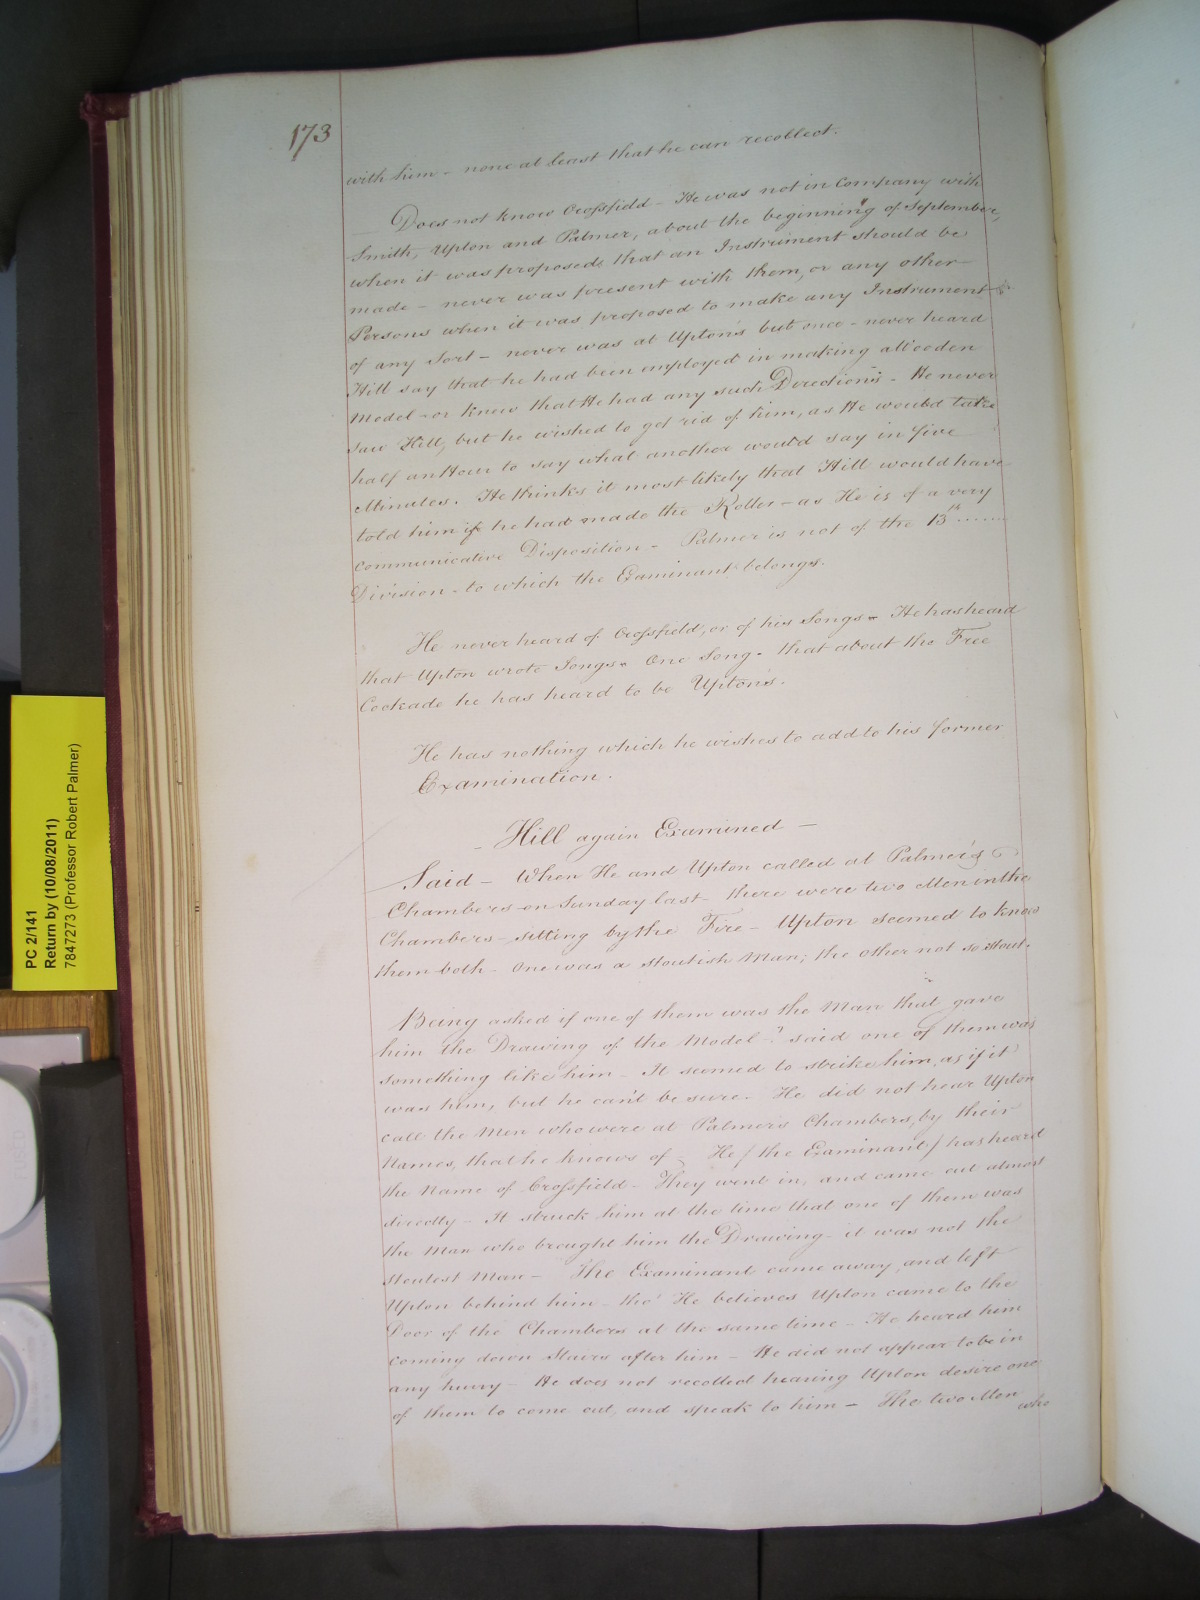 173
with him - none at least that he can recollect.
Does not know Crossfield - He was not in Company with
Smith, Upton and Palmer, about the beginning of September,
when it was proposed that an Instrument should be
made - never was present with them, or any other
Persons when it was proposed to make any Instrument
of any Sort - never was at Upton's but once - never heard
Hill say that he had been employed in making a Wooden
Model - or knew that He had any such Directions - He never
saw Hill, but he wished to get rid of him, as He would take
half an Hour to say what another would say in five
Minutes. He thinks it most likely that Hill would have
told him if he had made the Roller - as He is of a very
communicative Disposition - Palmer is not of the 13th ......
Division - to which the Examinant belongs.
He never heard of Crossfield, or of his Songs - He has heard
that Upton wrote Songs - One Song - that about the Free
Cockade he has heard to be Upton's.
He has nothing which he wishes to add to his former
Examination.
- Hill again Examined -
Said - When He and Upton called at Palmer's
Chambers on Sunday last - there were two Men in the
Chambers - sitting by the Fire - Upton seemed to know
them both - One was a stoutish Man; the other not so stout.
Being asked if one of them was the Man that gave
him the Drawing of the Model -? said one of them was
something like him - It seemed to strike him, as if it
was him, but he can't be sure - He did not hear Upton
call the Men who were at Palmer's Chambers, by their
Names, that he knows of - He / the Examinant / has heard
the Name of Crossfield - They went in, and came out almost
directly - It struck him at the time that one of them was
the Man who brought him the Drawing - it was not the
stoutest Man - The Examinant came away, and left
Upton behind him - tho' He believes Upton came to the
Door of the Chambers at the same time - He heard him
coming down Stairs after him - He did not appear to be in
any hurry - He does not recollect hearing Upton desire one
of them to come out, and speak to him - The two Men
who
PC 2/141
Return by (10/08/2011)
7847273 (Professor Robert Palmer)